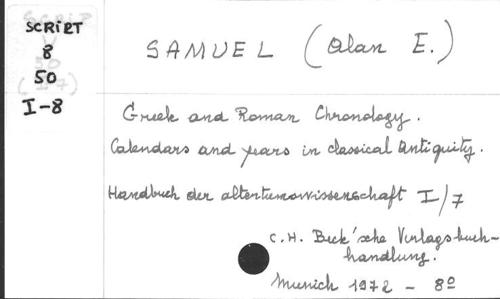 SCRIPT
8
50
I-8
SAMUEL (Alan E.)
Greek and Roman Chronology.
Calendars and years in classical Antiquity.
Handbuch der altertumswissenschaft I/7
C.H. Beck'sche Verlagsbuch-
handlung.
Munich 1972 - 8º